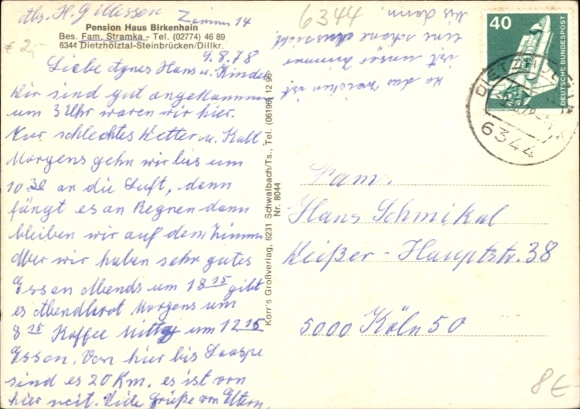 Abs. H. Gillissen
Zimmer 14
Pension Haus Birkenhain
Bes. Fam. Stramka - Tel. (02774) 46 89
6344 Dietzhölztal-Steinbrücken/Dillkr.
€ 2,-
4.8.78
Liebe Agnes Hans u. Kinder
Wir sind gut angekommen
um 3 Uhr waren wir hier.
Nur schlechtes Wetter u. Kalt
Morgens gehn wir bis um
10 30 an die Luft, dann
fängt es an Regnen dann
bleiben wir auf dem Zimmer
Aber wir haben sehr gutes
Essen Abends um 18 15 gibt
es Abendbrot Morgens um
8 15 Kaffee Mittag um 12 15
Essen. Von hier bis Laaspe
sind es 20 Km. es ist von
hier weit. Viele Grüße von Eltern.
6344
wo das Zeichen ist
ist unser Zimmer
eine schöne Aussicht
bis dann.
Korr's Großverlag, 6231 Schwalbach/Ts., Tel. (06196) 12 96
Nr. 8044
40
DEUTSCHE BUNDESPOST
6344
Fam.
Hans Schmikal
Keißer-Hauptstr. 38
5000 Köln 50
8€